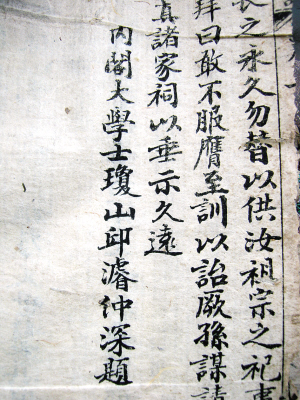 長之永久勿替以供汝祖宗之祀事
拜曰敢不服膺至訓以詒厥孫謀請
真諸家祠以垂示久遠
內閣大學士瓊山邱濬仲深題